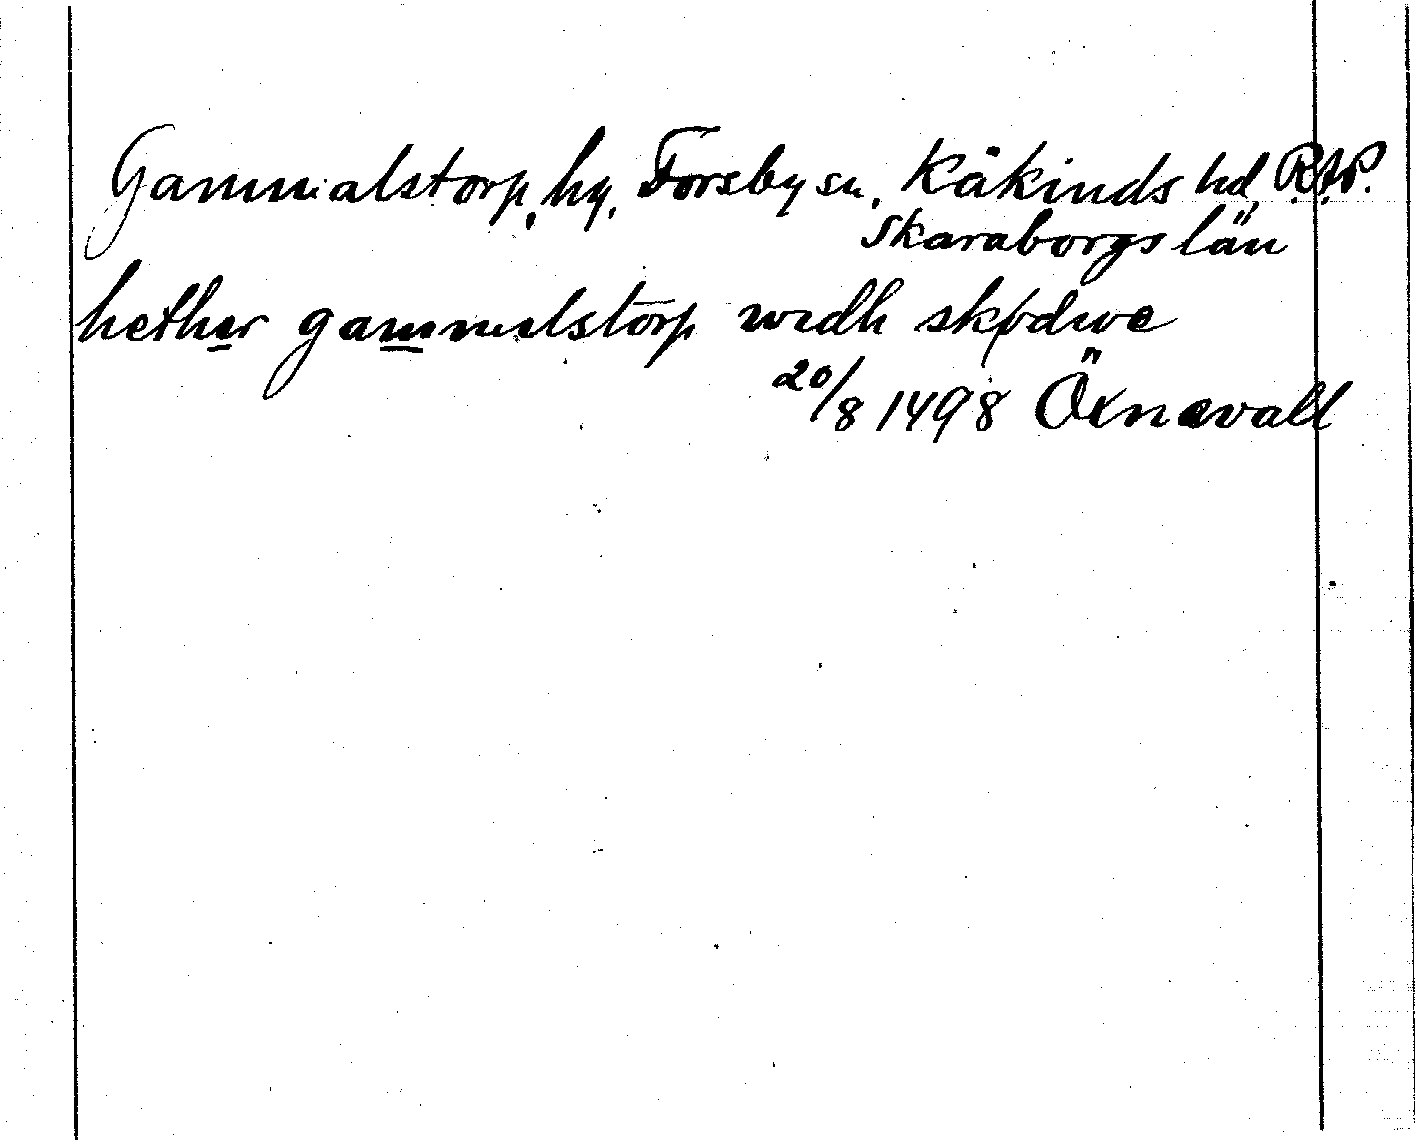 Gammalstorp, by, Forsby sn, Kåkinds hd, R.A.P.
Skaraborgs län
hether gammelstorp widh skødwe
20/8 1498 Öxnevall